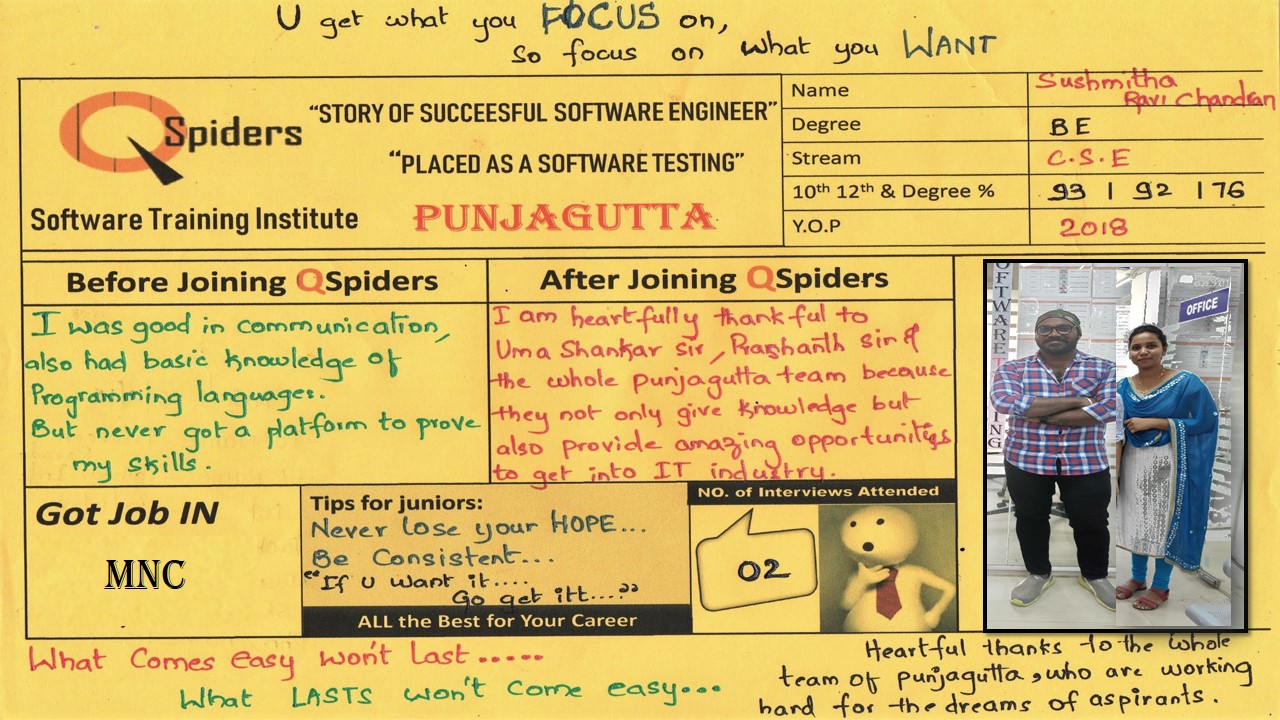 U get what you FOCUS on,
So focus on what you WANT
QSpiders
Software Training Institute
“STORY OF SUCCEESFUL SOFTWARE ENGINEER”
“PLACED AS A SOFTWARE TESTING”
PUNJAGUTTA
Name Sushmitha
Ravi Chandran
Degree BE
Stream C.S.E
10th 12th & Degree % 93 | 92 | 76
Y.O.P 2018
Before Joining QSpiders
I was good in communication,
also had basic knowledge of
Programming languages.
But never got a platform to prove
my skills.
After Joining QSpiders
I am heartfully thankful to
Uma Shankar sir, Prashanth sir &
the whole punjagutta team because
they not only give knowledge but
also provide amazing opportunities
to get into IT industry.
OFTWARE T
ING
OFFICE
Got Job IN
MNC
Tips for juniors:
Never lose your HOPE...
Be Consistent...
“If u want it....
Go get itt....”
ALL the Best for Your Career
NO. of Interviews Attended
02
What comes easy won't last.....
What LASTS won't come easy...
Heartful thanks to the whole
team of punjagutta, who are working
hard for the dreams of aspirants.